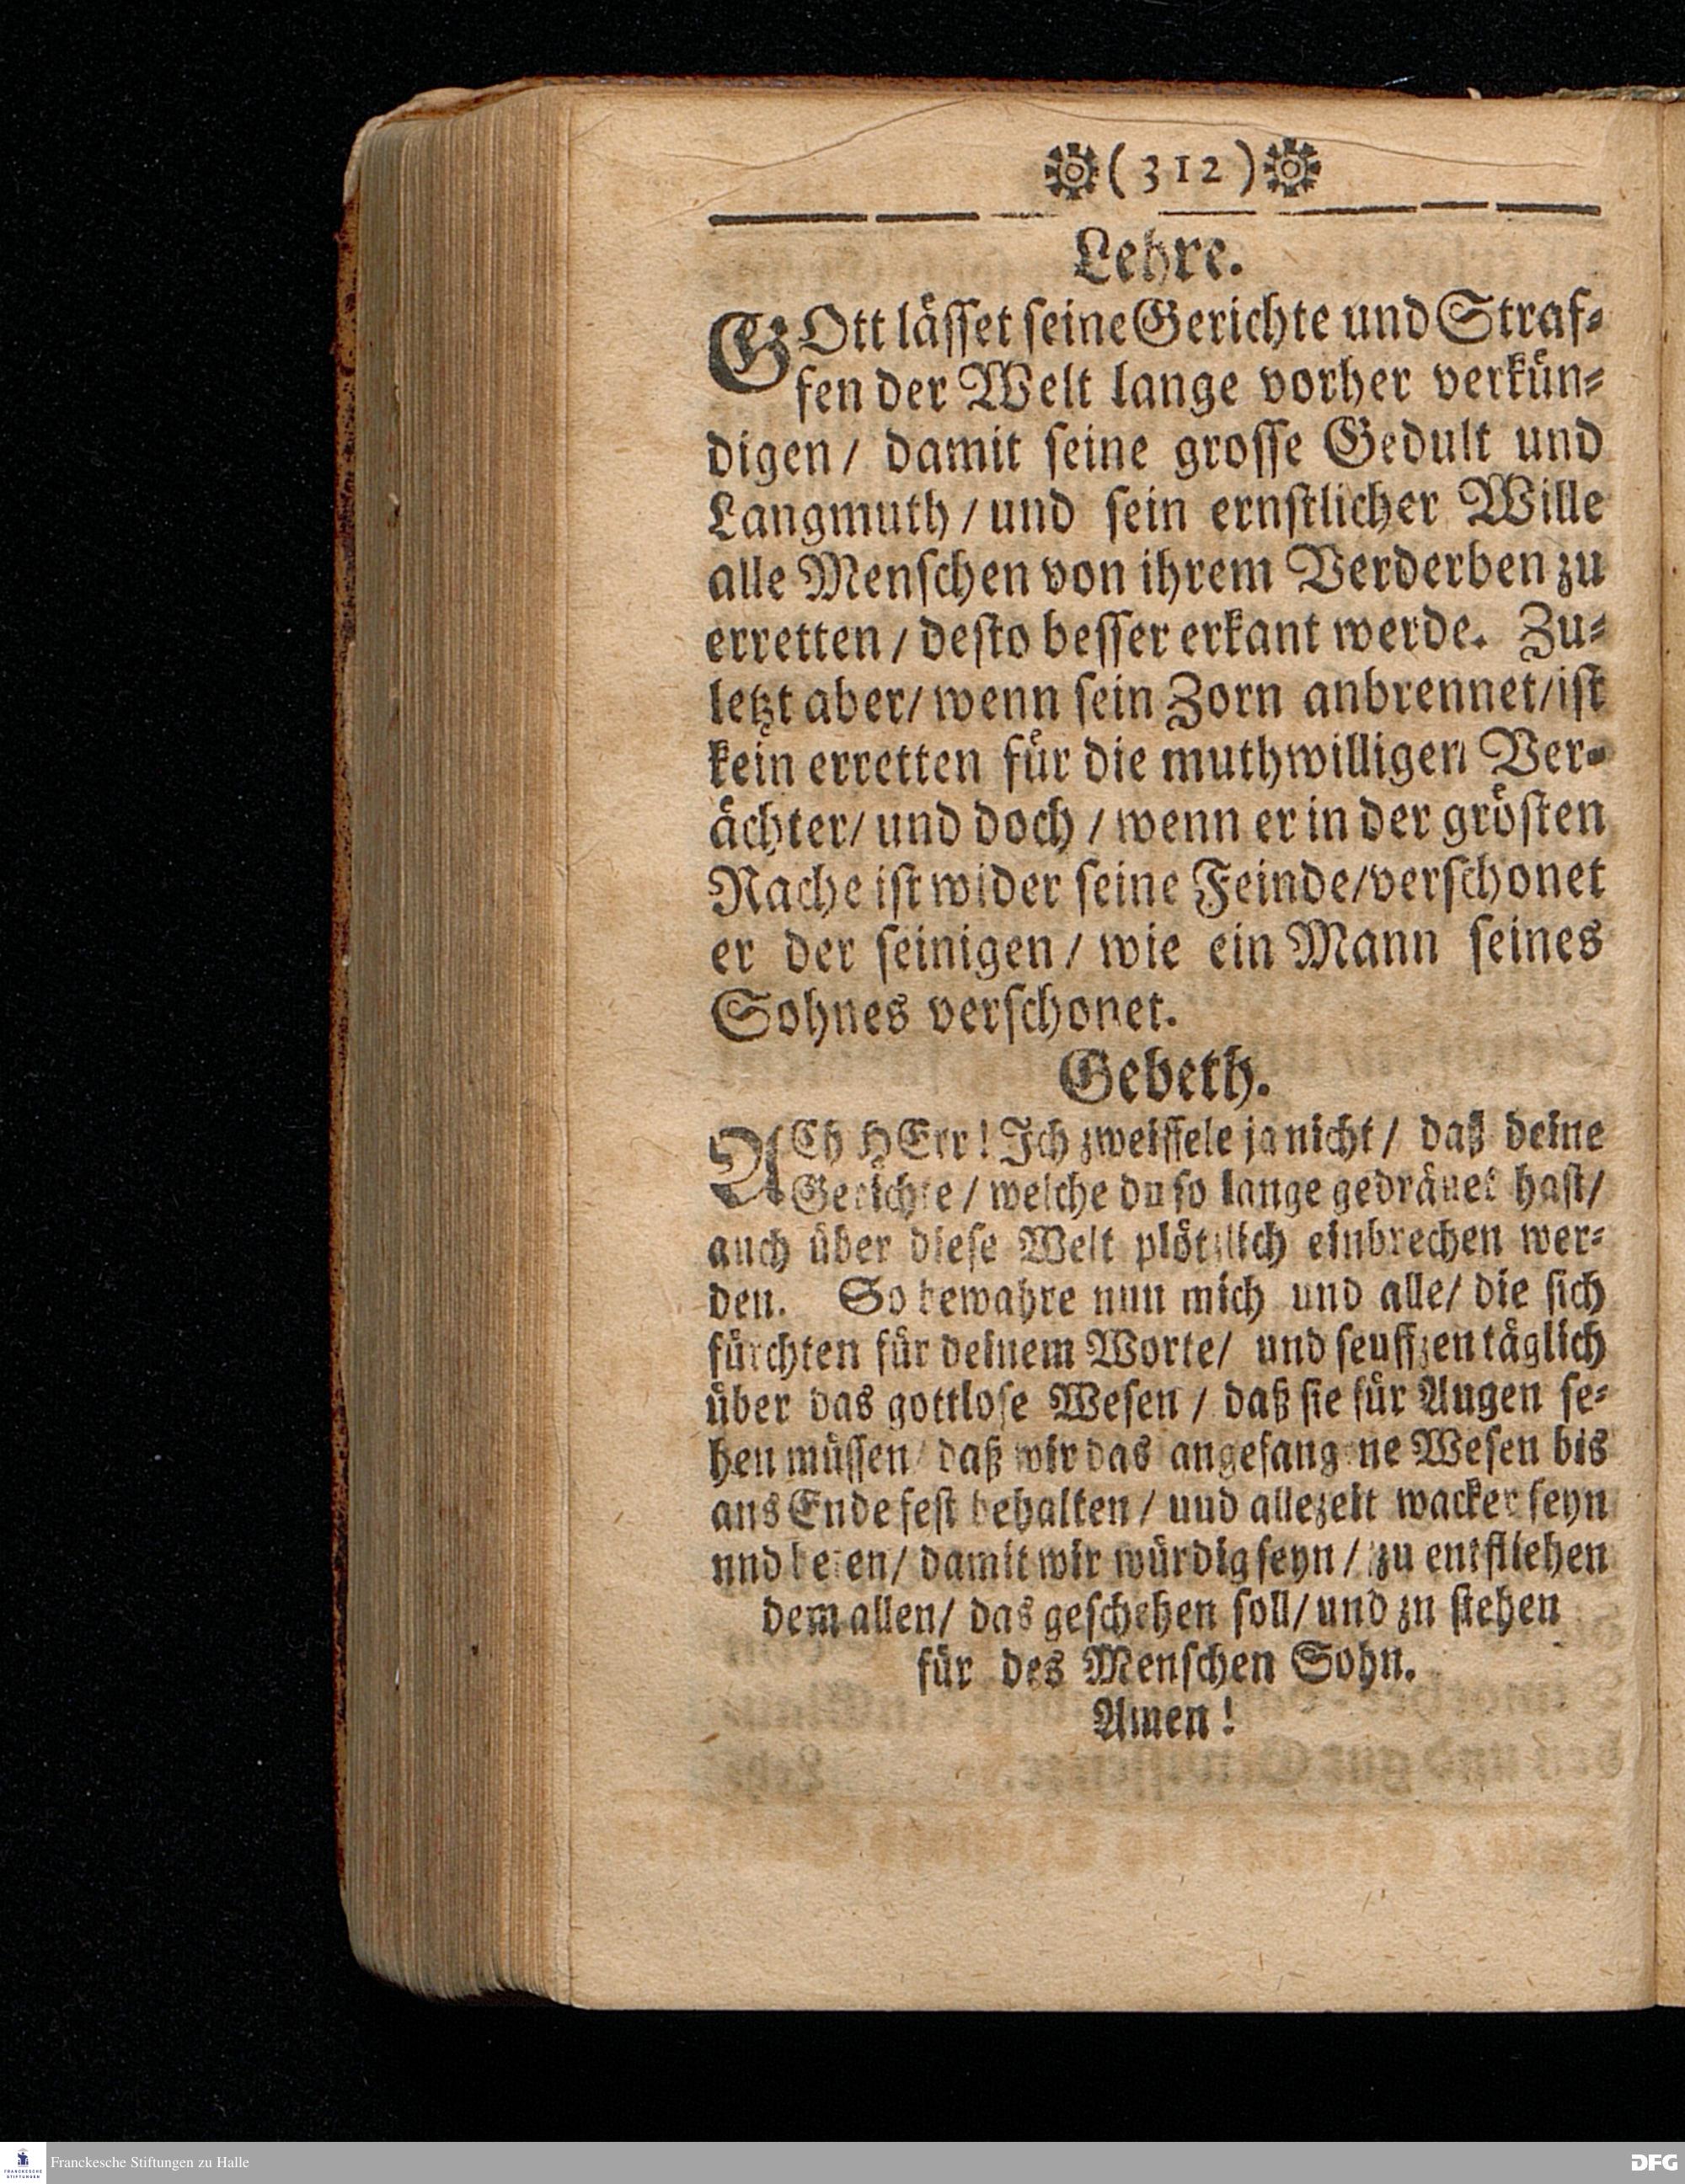 (312)
Lehre.
GOtt lässet seine Gerichte und Straf-
fen der Welt lange vorher verkün-
digen / damit seine grosse Gedult und
Langmuth / und sein ernstlicher Wille
alle Menschen von ihrem Verderben zu
erretten / desto besser erkant werde. Zu-
letzt aber / wenn sein Zorn anbrennet / ist
kein erretten für die muthwilligen Ver-
ächter / und doch / wenn er in der grösten
Rache ist wider seine Feinde / verschonet
er der seinigen / wie ein Mann seines
Sohnes verschonet.
Gebeth.
ACh HErr! Ich zweiffele ja nicht / daß deine
Gerichte / welche du so lange gedräuet hast /
auch über diese Welt plötzlich einbrechen wer-
den. So bewahre nun mich und alle / die sich
fürchten für deinem Worte / und seuffzen täglich
über das gottlose Wesen / daß sie für Augen se-
hen müssen / daß wir das angefangene Wesen bis
ans Ende fest behalten / und allezeit wacker seyn
und beten / damit wir würdig seyn / zu entfliehen
dem allen / das geschehen soll / und zu stehen
für des Menschen Sohn.
Amen!
FRANCKESCHE STIFTUNGEN
Franckesche Stiftungen zu Halle
DFG